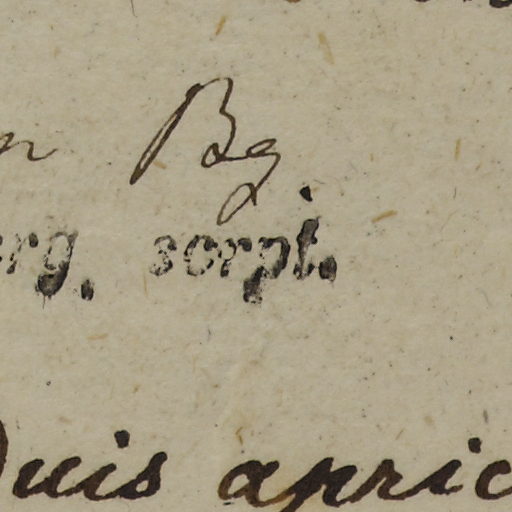 n Bg
rg. scrpt.
Duis apric